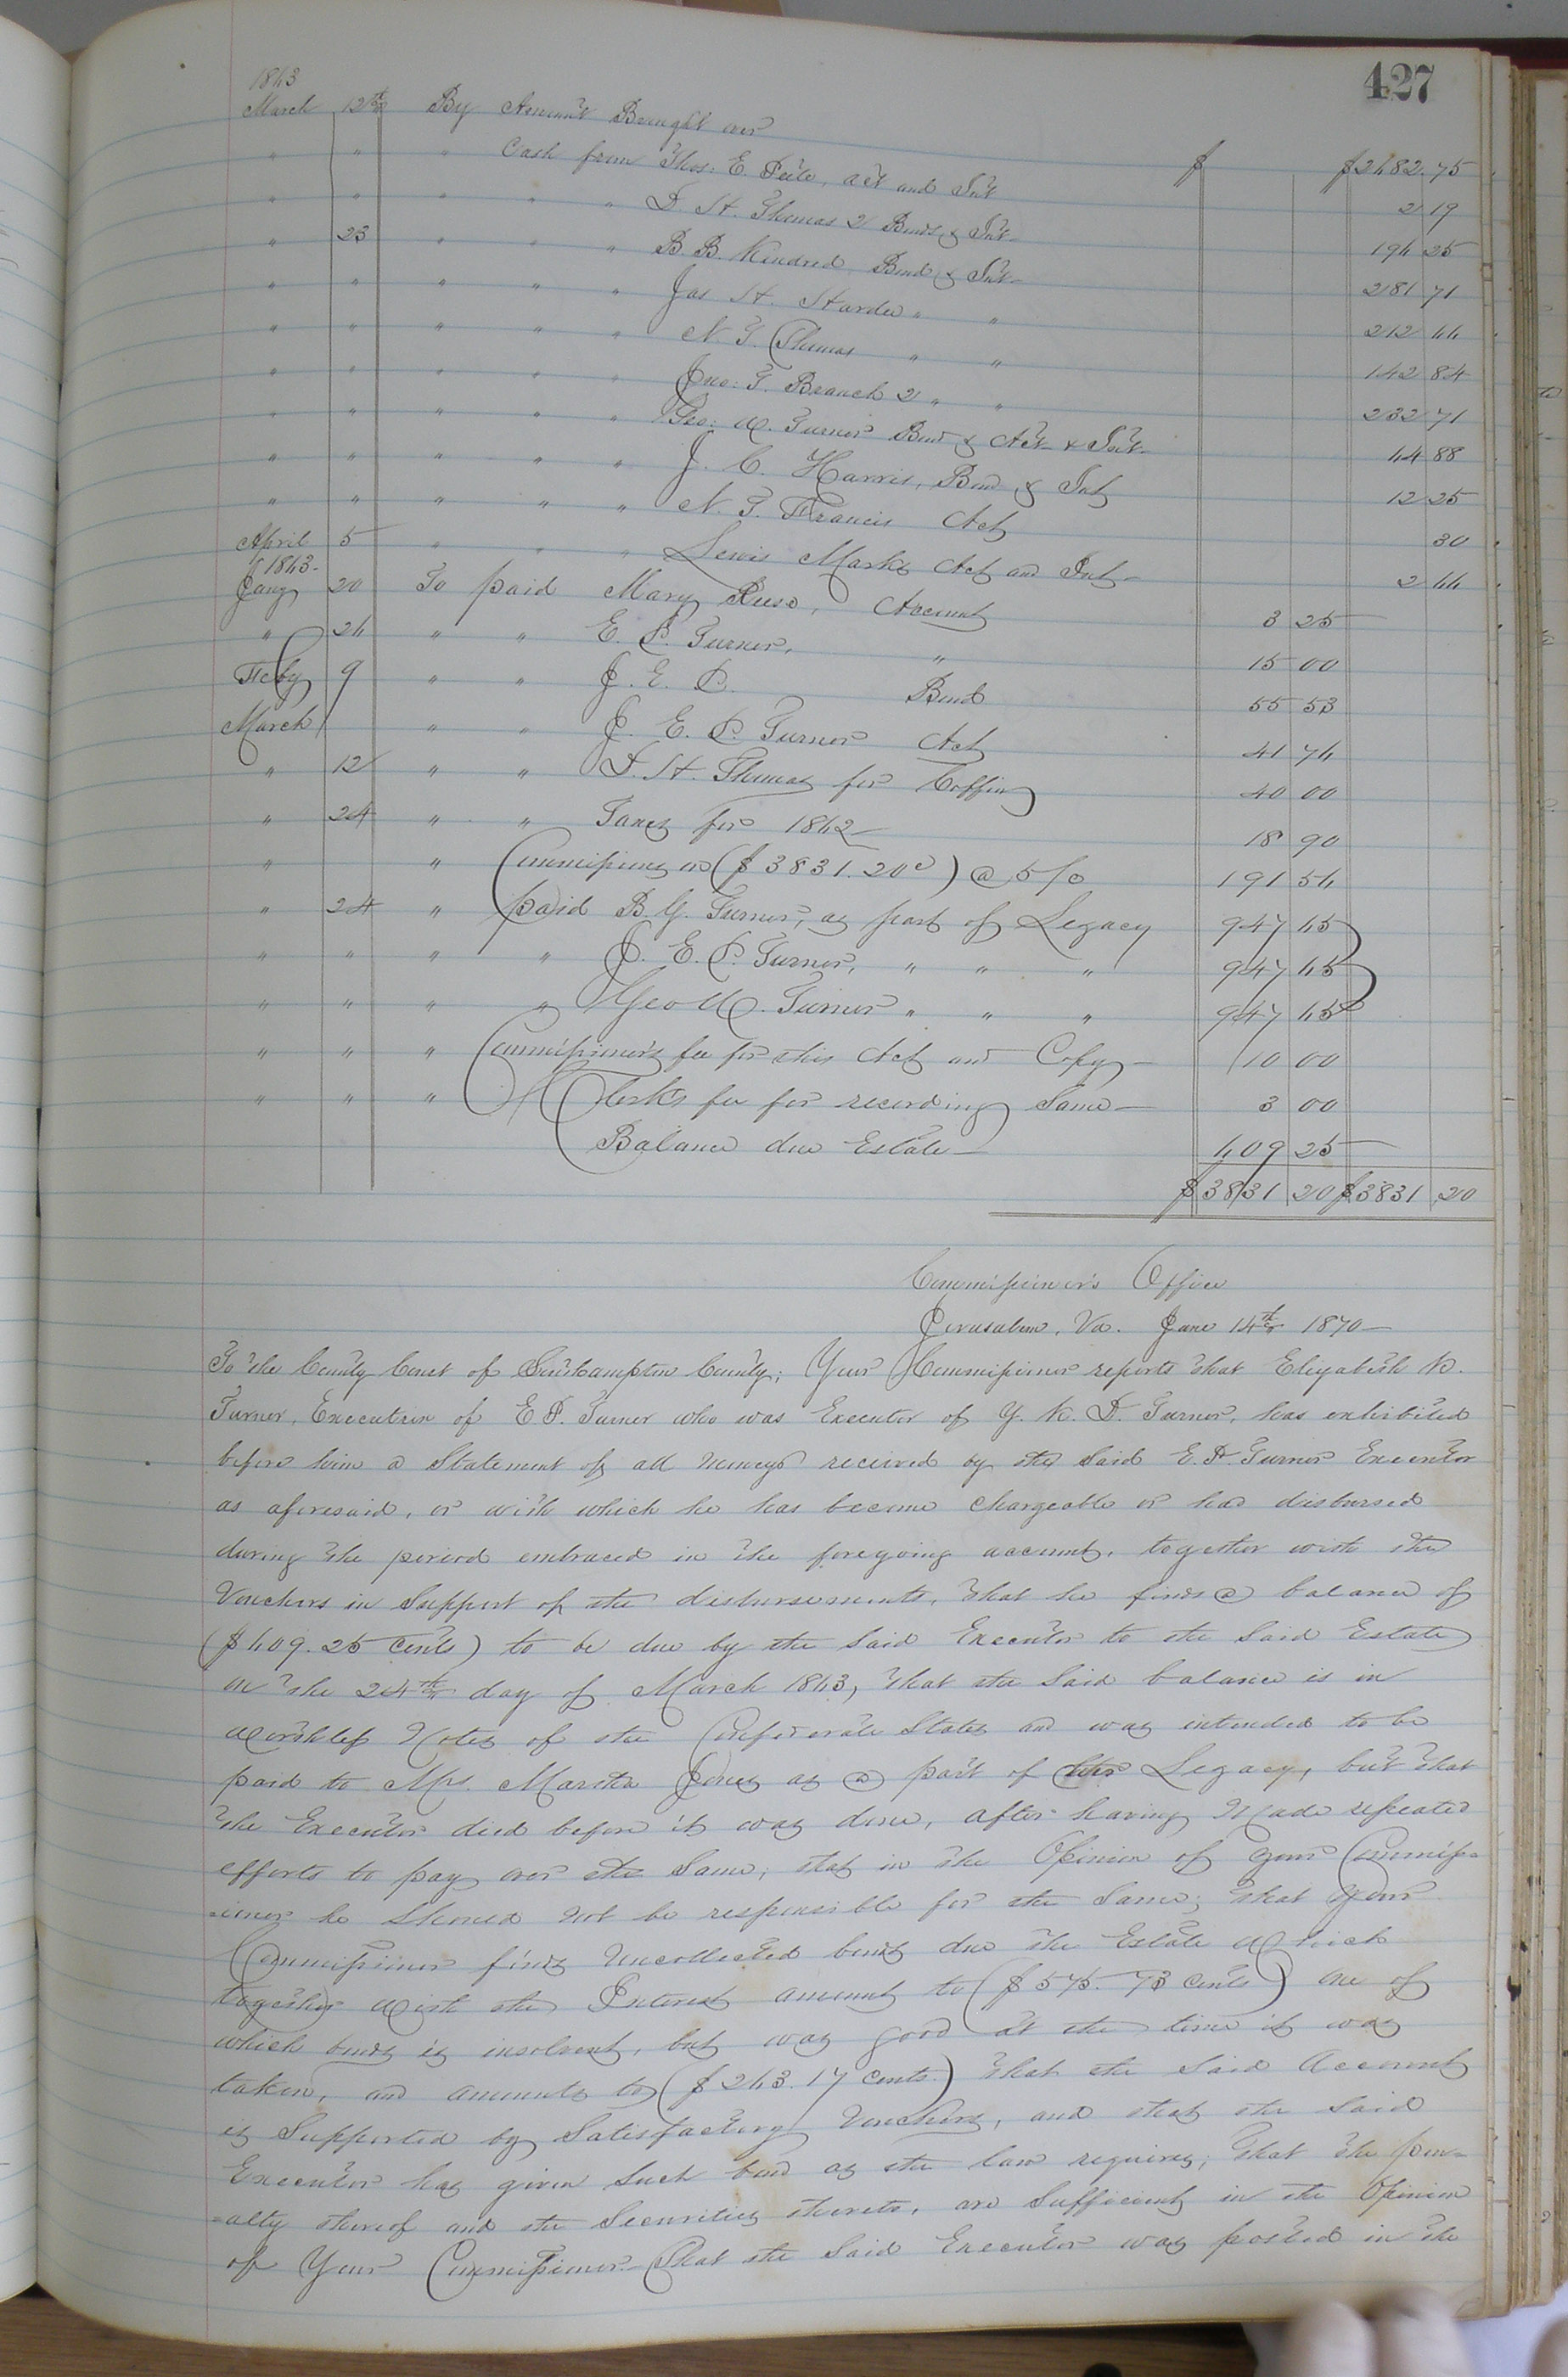 427
1863
March 12th By Amount Brought over $ $2682.75
" " " Cash from Thos. E. Pate, act and Int 2 19
" " " " " D. H. Thomas 2 Bonds & Int 196 25
" 23 " " " B. B. Kindred Bond & Int 281 71
" " " " " Jas H. Harder " " 212 66
" " " " " N. T. Thomas " " 142 84
" " " " " Jno: T. Branch 2 " " 232 71
" " " " " Geo: W. Turner Bond & Act & Int 64 88
" " " " " J. C. Harris, Bond & Int 12 25
" " " " " N. T. Francis Act 30
April 5 " " " Lewis Marks Act and Int 2 66
1863
Jany 20 To paid Mary Reese, Account 3 25
" 26 " " E. P. Turner, " 15 00
Feby 9 " " J. E. P. Bond 55 53
March " " J. E. P. Turner Act 41 76
" 12 " " D. H. Thomas for Coffin 40 00
" 24 " " Taxes for 1862 18 90
" " Commissions on ($3831.20c) @ 5/o 191 56
" 24 " paid B. G. Turner, as part of Legacy 947 65
" " " " J. E. P. Turner, " " " 947 65
" " " " Geo W. Turner " " " 947 65
" " " Commissioner's fee for this Act and Copy 10 00
" " " Clerks fee for recording Same 3 00
Balance due Estate 609 25
$3831 20 $3831 20
Commissioner's Office
Jerusalem, Va. June 14th 1870
To the County Court of Southampton County; Your Commissioner reports that Elizabeth K.
Turner, Executrix of E P. Turner who was Executor of Y. K. D. Turner, has exhibited
before him a Statement of all moneys received by the said E. P. Turner Executor
as aforesaid, or with which he has become chargeable or had disbursed
during the period embraced in the foregoing account, together with the
Vouchers in Support of the disbursements, that he finds a balance of
($609.25 cents) to be due by the said Executor to the said Estate
on the 24th day of March 1863, that the said balance is in
worthless Notes of the Confederate States and was intended to be
paid to Mrs. Martha Jones as a part of her Legacy, but that
the Executor died before it was done, after having made repeated
efforts to pay over the Same; that in the Opinion of your Commiss=
=ioner he should not be responsible for the Same; that your
Commissioner finds uncollected bonds due the Estate which
together with the Interest amount to ($575.73 cents) one of
which bonds is insolvent, but was good at the time it was
taken, and amounts to ($263.17 cents) that the said Account
is Supported by Satisfactory Vouchers, and that the said
Executor has given Such bond as the law requires; that the pen=
=alty thereof and the Securities thereto, are Sufficient in the Opinion
of Your Commissioner. That the said Executor was posted in the